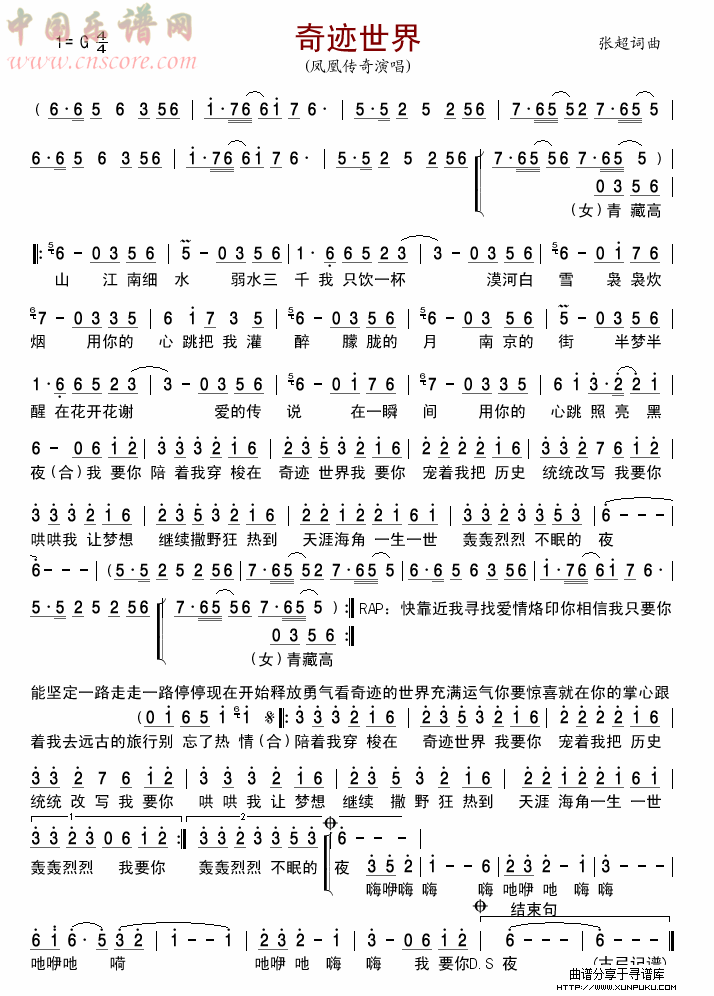 中国乐谱网
www.cnscore.com
1=G 4/4
奇迹世界
(凤凰传奇演唱)
张超词曲
( 6·6 5 6 3 56 | i·76 6i 76· | 5·5 2 5 2 56 | 7·65 52 7·65 5 |
6·6 5 6 3 56 | i·76 6i 76· | 5·5 2 5 2 56 | 7·65 56 7·65 5 )
0 3 5 6
(女)青 藏高
6 - 0 3 5 6 | 5 - 0 3 5 6 | 1· 6 6 5 2 3 | 3 - 0 3 5 6 | 6 - 0 i 7 6 |
山 江 南细 水 弱水三 千我 只饮一杯 漠河白 雪 袅袅炊
7 - 0 3 3 5 | 6 i 7 3 5 | 6 - 0 3 5 6 | 6 - 0 3 5 6 | 5 - 0 3 5 6 |
烟 用你的 心 跳把 我 灌 醉 朦胧的 月 南京的 街 半梦半
1· 6 6 5 2 3 | 3 - 0 3 5 6 | 6 - 0 i 7 6 | 7 - 0 3 5 6 | 6 i 3· 2 2 i |
醒 在花开花谢 爱的传 说 在一瞬 间 用你的 心跳 照 亮 黑
6 - 0 6 i 2 | 3 3 3 2 i 6 | 2 3 5 3 2 i 2 | 2 2 2 2 i 6 | 3 3 2 7 6 i 2 |
夜(合)我 要你 陪 着我穿 梭在 奇迹 世界我 要你 宠着我把 历史 统统改写 我要你
3 3 3 2 i 6 | 2 3 5 3 2 i 6 | 2 2 i 2 2 i 6 i | 3 3 2 3 3 5 3 | 6 - - - |
哄哄我 让梦想 继续撒野狂 热到 天涯海角 一生一世 轰轰烈烈 不眠的 夜
6 - - - | (5·5 2 5 2 56 | 7·65 52 7·65 5 | 6·6 5 6 3 56 | i·76 6i 76· |
5·5 2 5 2 56 | 7·65 56 7·65 5 ) :‖ RAP: 快靠近我寻找爱情烙印你相信我只要你
0 3 5 6 :‖
(女)青藏高
能坚定一路走走一路停停现在开始释放勇气看奇迹的世界充满运气你要惊喜就在你的掌心跟
(0 i 6 5 i i ‖: 3 3 3 2 i 6 | 2 3 5 3 i 2 | 2 2 2 2 i 6 |
着我去远古的旅行别 忘了热 情(合)陪着我穿 梭在 奇迹世界 我要你 宠着我把 历史
3 3 2 7 6 i 2 | 3 3 3 2 i 6 | 2 3 5 3 2 i 6 | 2 2 i 2 2 i 6 i |
统统 改 写 我 要你 哄 哄 我 让 梦想 继续 撒 野 狂 热到 天涯 海角一生 一世
1 2
3 3 2 3 0 6 i 2 :‖ 3 3 2 3 3 5 3 | 6 - - - |
轰轰烈烈 我要你 轰轰烈烈 不眠的 夜
3 5 2 | 1 - - 6 | 2 3 2 - i |
嗨咿嗨 嗨 嗨 吔咿 吔 嗨 嗨
结束句
6 i 6· 5 3 2 | i - - i | 2 3 2 - i | 2 - i 2 | 6 - - - | 6 - - - ‖
吔咿吔 嗬 吔咿 吔 嗨 嗨 我 要你D.S 夜 (古弓记谱)
曲谱分享于寻谱库
HTTP://WWW.XUNPUKU.COM